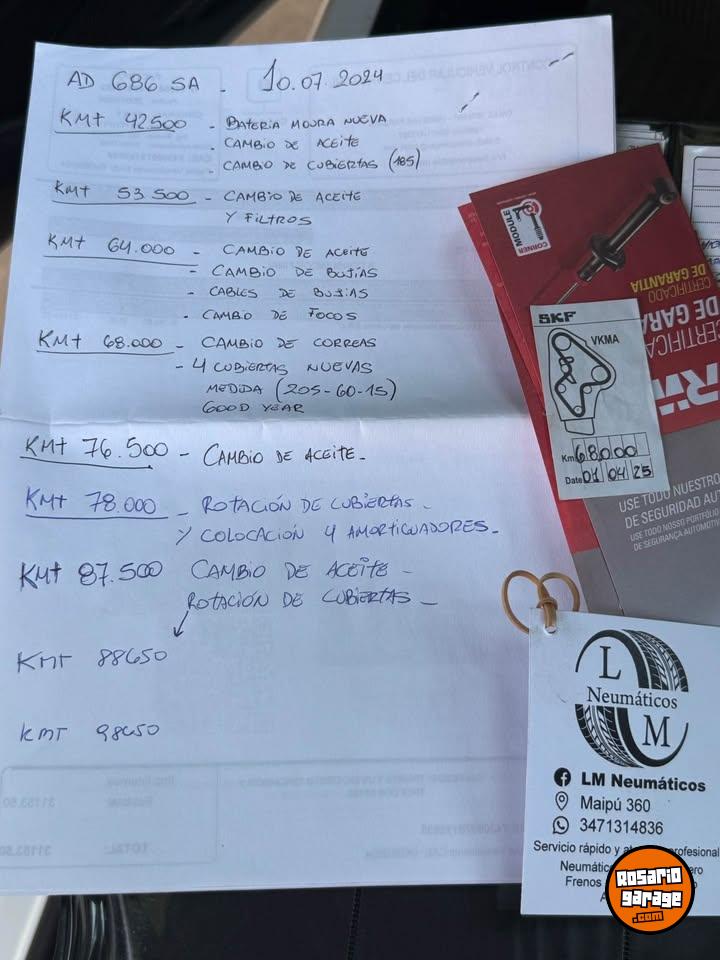 AD 686 SA - 10.07.2024
KMT 42500 - BATERIA MOURA NUEVA
- CAMBIO DE ACEITE
- CAMBIO DE CUBIERTAS (185)
KMT 53.500 - CAMBIO DE ACEITE
Y FILTROS
KMT 64.000 - CAMBIO DE ACEITE
- CAMBIO DE BUJIAS
- CABLES DE BUJIAS
- CAMBIO DE FOCOS
KMT 68.000 - CAMBIO DE CORREAS
- 4 CUBIERTAS NUEVAS
MEDIDA (205-60-15)
GOOD YEAR
KMT 76.500 - CAMBIO DE ACEITE -
KMT 78.000 - ROTACIÓN DE CUBIERTAS -
Y COLOCACIÓN 4 AMORTIGUADORES -
KMT 87.500 CAMBIO DE ACEITE -
ROTACIÓN DE CUBIERTAS -
KMT 88650
KMT 98650
CORNER
MODULE
CERTIFICADO
DE GARANTIA
SKF
VKMA
Km 68000
Date 01 04 25
USE TODO NUESTRO
DE SEGURIDAD
USE TODO NOSSO PORTFÓLIO
DE SEGURANÇA
L
Neumáticos
M
LM Neumáticos
Maipú 360
3471314836
Servicio rápido y profesional
Frenos
Rosario
garage
.com
31153.50
TOTAL:
31153.50